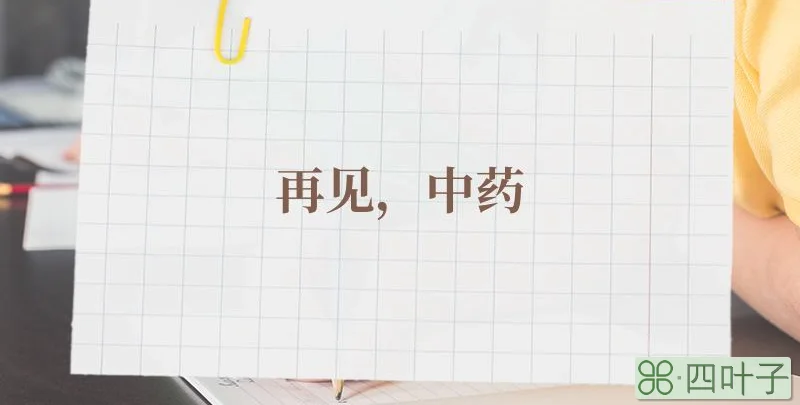 再见，中药
四叶子